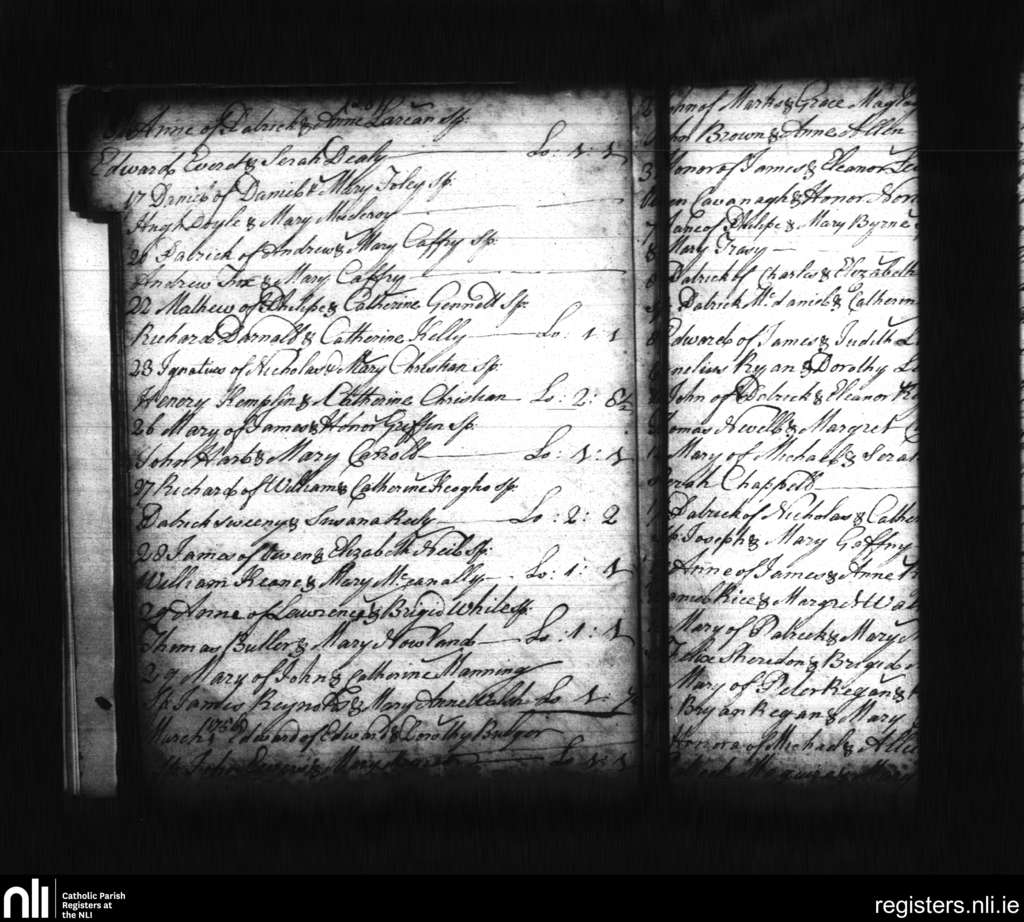 Anne of Patrick & Anne Larean Sp:
Edward Everd & Serah Dealy Lo: 1: 1
17 Daniel of Daniel & Mary Foley Sp:
Hugh Doyle & Mary
20 Patrick of Andrew & Mary Caffry Sp:
Andrew & Mary Caffry
22 Mathew of Philipe & Catherine Gennett Sp:
Richard Darnald & Catherine Kelly Lo: 1 1
23 Ignatius of Nicholas & Mary Christian Sp:
Henery Kemplin & Catherine Christian Lo: 2: 8½
26 Mary of James & Honor Griffin Sp:
John Harb & Mary Carroll Lo: 1: 1
27 Richard of William & Catherine Keogho Sp:
Patrick Sweeny & Susana Lo: 2: 2
28 James of Owen & Elizabeth Neil Sp:
William Keane & Mary McEanally Lo: 1: 1
29 Anne of Lawrence & Brigid White Sp:
Thomas Butler & Mary Nowland Lo: 1: 1
29 Mary of John & Catherine Manning
Sp James Reynolds & Mary Anne Walsh Lo 1:
March 1 1756 Edward of Edward & Dorothy Bulger
Sp John & Mary Lo: 1: 1
John of Marks & Grace
John Brown & Anne Allen
3 Honor of James & Eleanor
Owen Cavanagh & Honor
7 Jane of Philipe & Mary Byrne
& Mary Tracy
8 Patrick of Charles & Elizabeth
Sp Patrick McDaniel & Catherin
Edward of James & Judith
Cornelius Ryan & Dorothy
John of Patrick & Eleanor
Thomas Newell & Margret
Mary of Michael & Sera
Serah Chappell
Patrick of Nicholas & Cathe
Sp: Joseph & Mary Goffny
Anne of James & Anne
James Rice & Margret Wal
Mary of Patrick & Mary
Felix Sheredon & Brigid
Mary of Peter Regan &
Bryan Regan & Mary
Honora of Michael & Allic
Patrick Maguire & Mary
nli
Catholic Parish
Registers at
the NLI
registers.nli.ie